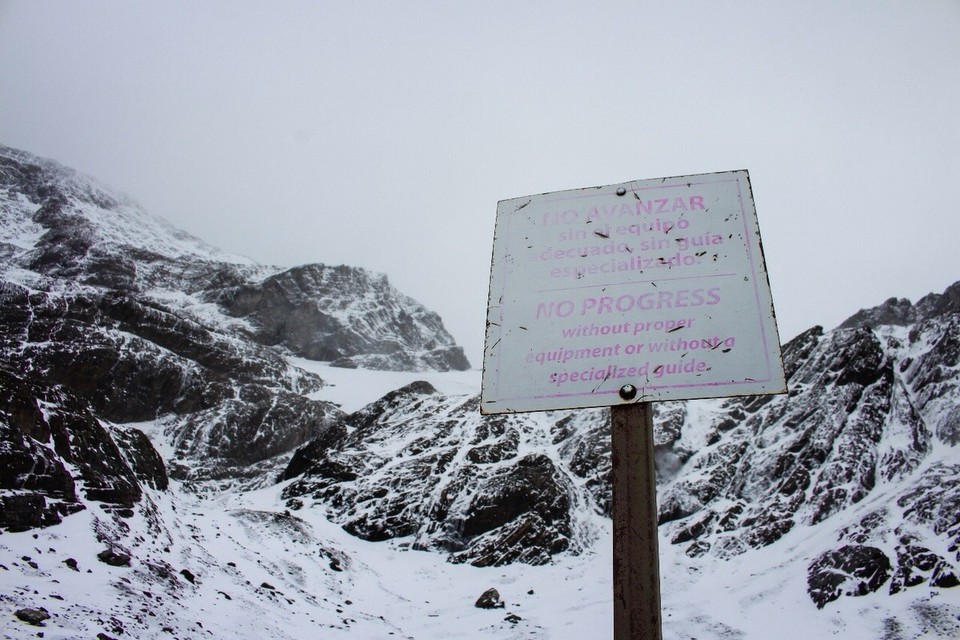 NO AVANZAR
sin el equipo
adecuado, sin guía
especializado.
NO PROGRESS
without proper
equipment or without a
specialized guide.